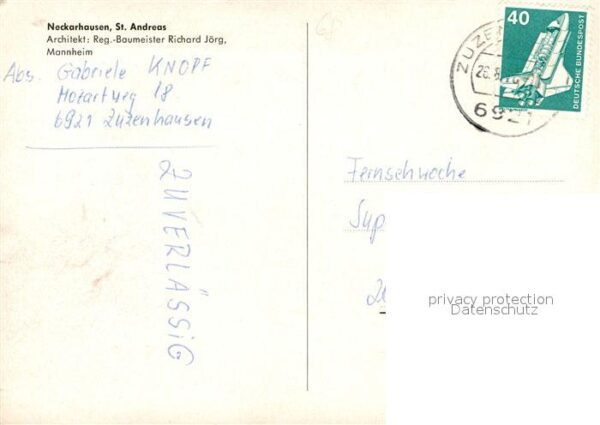 Neckarhausen, St. Andreas
Architekt: Reg.-Baumeister Richard Jörg,
Mannheim
Abs. Gabriele KNOPF
Mozartweg 18
6921 Zuzenhausen
ZUVERLÄSSiG
40
DEUTSCHE BUNDESPOST
6921
Fernsehwoche
privacy protection
Datenschutz